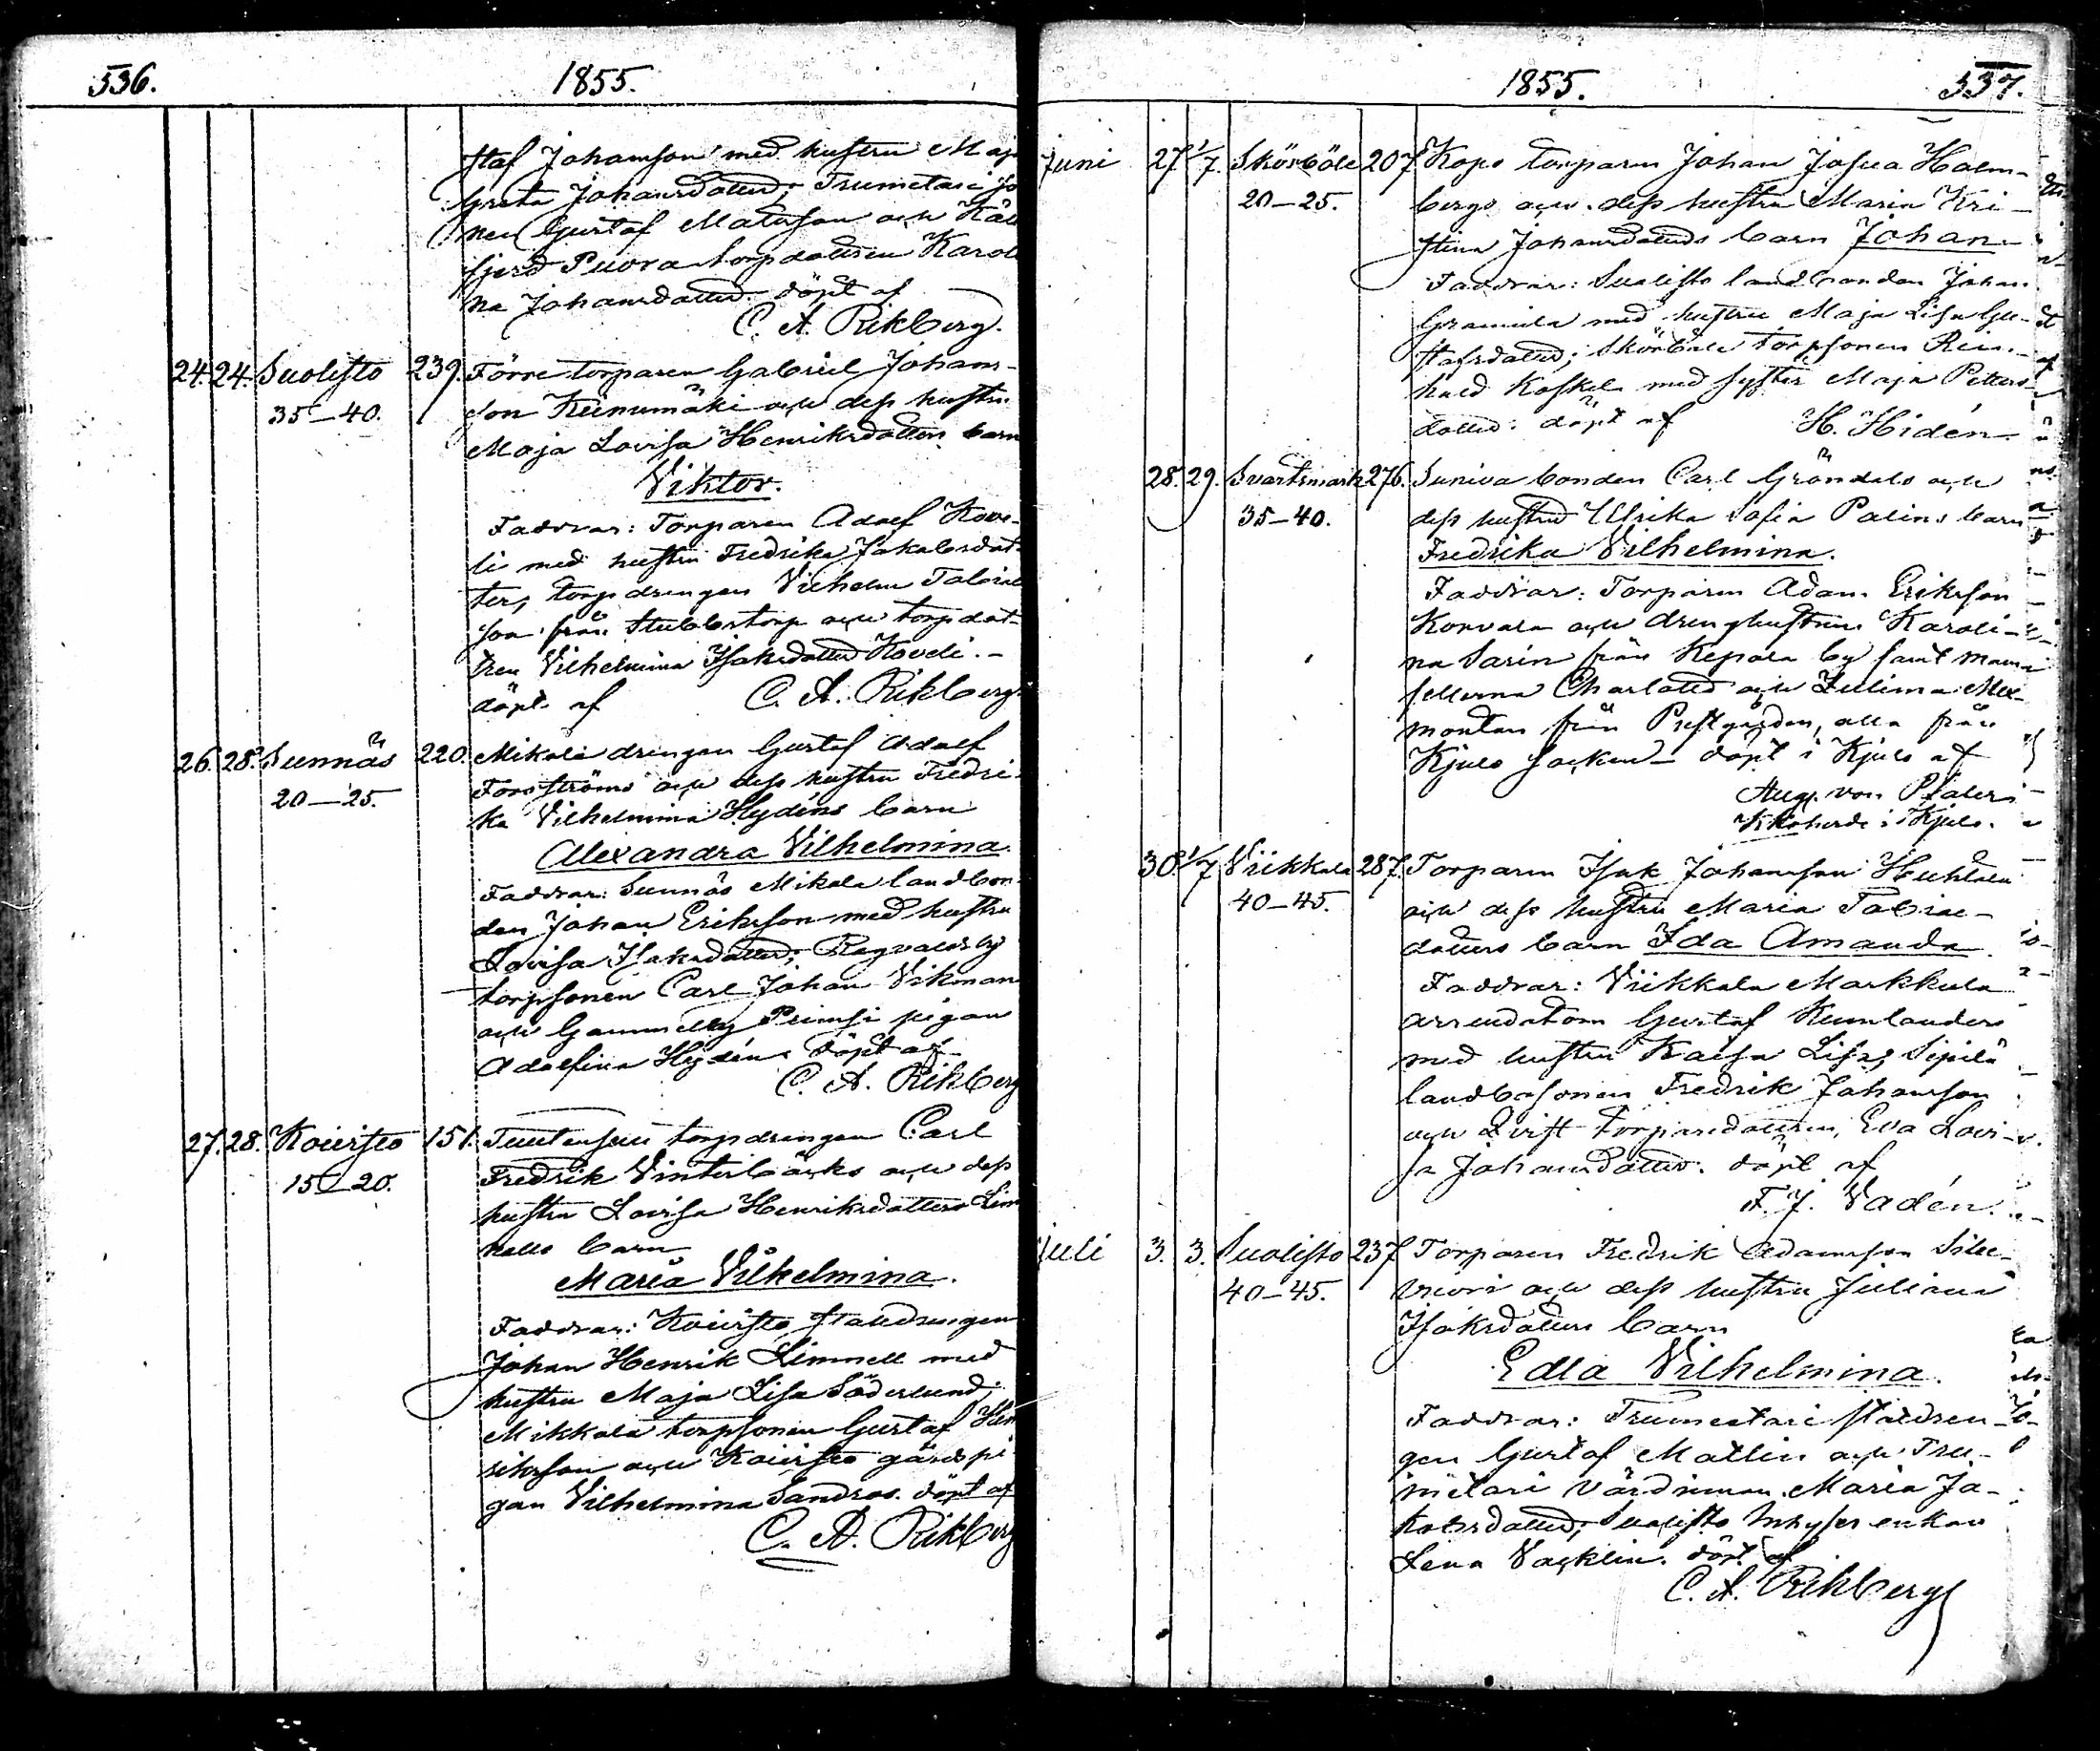 536.
1855.
staf Johansson med hustru Maja
Greta Johansdotter; Trumetari so
nen Gustaf Matsson och Käll
fjerd Puora torpdottren Karoli
na Johansdotter. döpt af
C. A. Rikberg.
24. 24. Suolisto 239. Förre torparen Gabriel Johans-
35–40. son Kiinumäki och dess hustru
Maja Lovisa Henriksdotters barn
Viktor.
Faddrar: Torparen Adolf Kove-
li med hustru Fredrika Jakobsdot-
ter, torpdrengen Vilhelm Tobias
son från Stubbstorp och torpdot-
tren Vilhelmina Isaksdotter Koveli.–
döpt af C. A. Rikberg
26. 28. Sunnäs 220. Mikola drengen Gustaf Adolf
20–25. Forsströms och dess hustru Fredri-
ka Vilhelmina Hydéns barn
Alexandra Vilhelmina.
Faddrar: Sunnäs Mikola landbon-
den Johan Eriksson med hustru
Lovisa Isaksdotter; Ragvaldsby
torpsonen Carl Johan Vikman
och Gammelby Prinsi pigan
Adolfina Hydén. döpt af
C. A. Rikberg
27. 28. Koivisto 151. torpdrengen Carl
15–20. Fredrik Vinterbäcks och dess
hustru Lovisa Henriksdotters Lim
nells barn
Maria Vilhelmina.
Faddrar: Koivisto stalldrengen
Johan Henrik Limnell med
hustru Maja Lisa Söderlund;
Mikkola torpsonen Gustaf Hen
riksson och Koivisto gårdspi
gan Vilhelmina Sandroos. döpt af
C. A. Rikberg
1855.
537.
Juni 27 1/7. Skörböle 207. Kops torparen Johan Josua Holm-
20–25. bergs och dess hustru Maria Kri-
stina Johansdotters barn Johan.
Faddrar: Suolisto landbonden Johan
Gramila med hustru Maja Lisa Gu-
stafsdotter; Skörböle torpsonen Rein-
hold Koskel med syster Maja Petters-
dotter. döpt af H. Hidén.
28. 29. Svartsmark 276. Suniva bonden Carl Gröndals och
35–40. dess hustru Ulrika Sofia Palins barn
Fredrika Vilhelmina.
Faddrar: Torparen Adam Eriksson
Korvala och drenghustrun Karoli-
na Sarin från Kepola by samt mam-
sellerna Charlotta och Zulima Mex-
montan från Prestgården, alla från
Kjulo socken – döpt i Kjulo af
Aug. von Pfaler
Kkoherde i Kjulo.
30. 1/7 Viikkala 287. Torparen Isak Johansson Huhtala
40–45. och dess hustru Maria Tobias-
dotters barn Ida Amanda.
Faddrar: Viikkala Markkula
arrendatorn Gustaf Kumlanders
med hustru Kajsa Lisa; Sipilä
landbosonen Fredrik Johansson
och Qvist torparedottren, Eva Lovi-
sa Johansdotter. döpt af
F. J. Vadén.
Juli 3. 3. Suolisto 237 Torparen Fredrik Adamsson Silu-
40–45. vuori och dess hustru Juliana
Isaksdotters barn
Edla Vilhelmina.
Faddrar: Trumetari stalldren-
gen Gustaf Mallin och Tru-
metari värdinnan Maria Ja-
kobsdotter; Suolisto Inhyses enkan
Lena Vacklin. döpt af
C. A. Rikberg